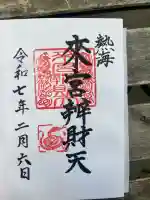 熱海
来宮辨財天
令和七年二月六日